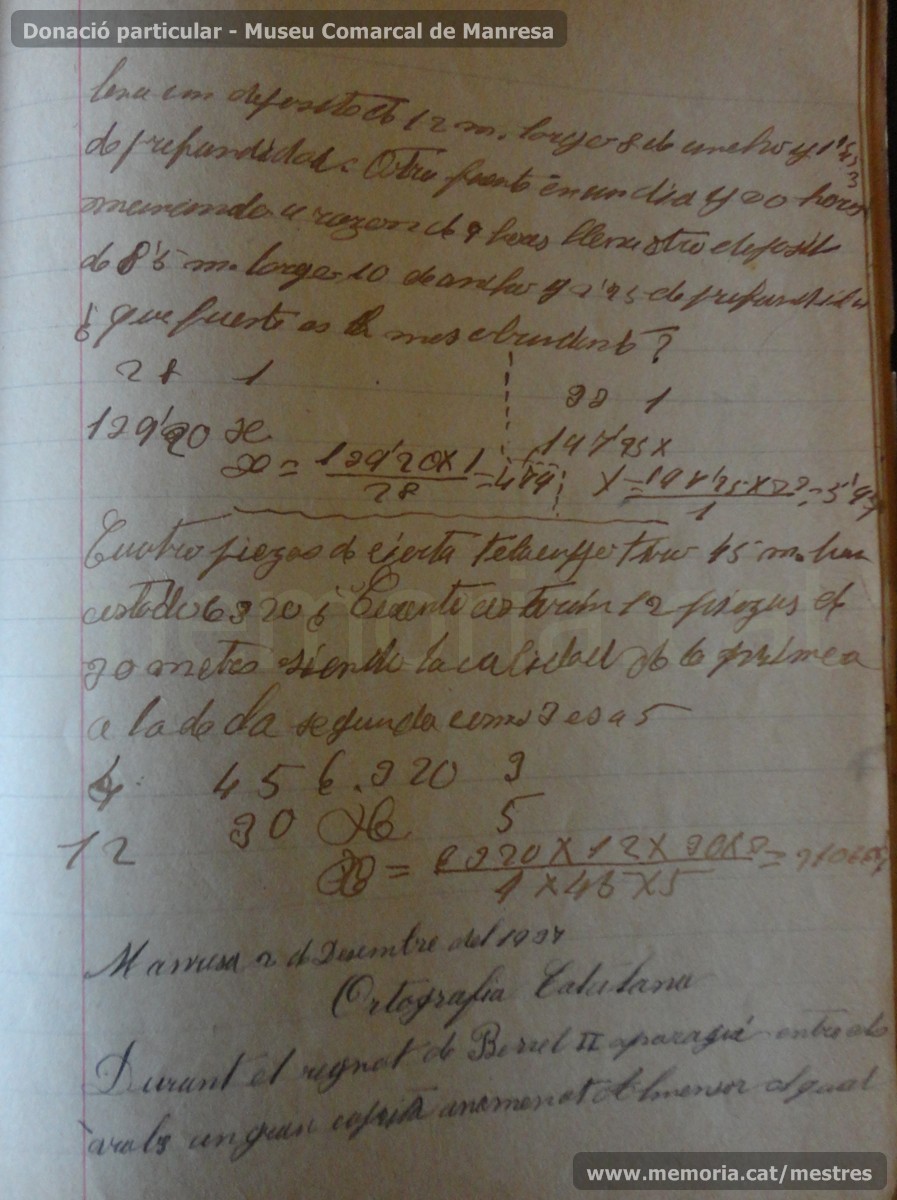 Donació particular - Museu Comarcal de Manresa
llena un deposito de 12 m. largo 8 de ancho y 1'
de profundidad. Otra fuente en un dia y 20 horas
manando a razon de hores llena otro deposit
de 8'5 m. largo 10 de ancho y de profundidad
¿ que fuente es la mes abundant ?
28 1
33 1
129'20 x
147'25 x
x = 129'20 x 1 / 28 =
x = 
Cuatro piezas de cierta tela 45 m. han
costado 6320 ¿ Cuanto costarán 12 piezas de
30 metros siendo la calidad de la primera
a la de la segunda como 3 es a 5
4 45 6.320 3
12 30 x 5
x = 6320 x 12 x 30 x 3 / 4 x 45 x 5 =
Manresa 2 de Desembre del 1937
Ortografia Catalana
Durant el regnat de Borrel II aparagué entre els
arabs un gran capità anomenat Almensor el qual
www.memoria.cat/mestres